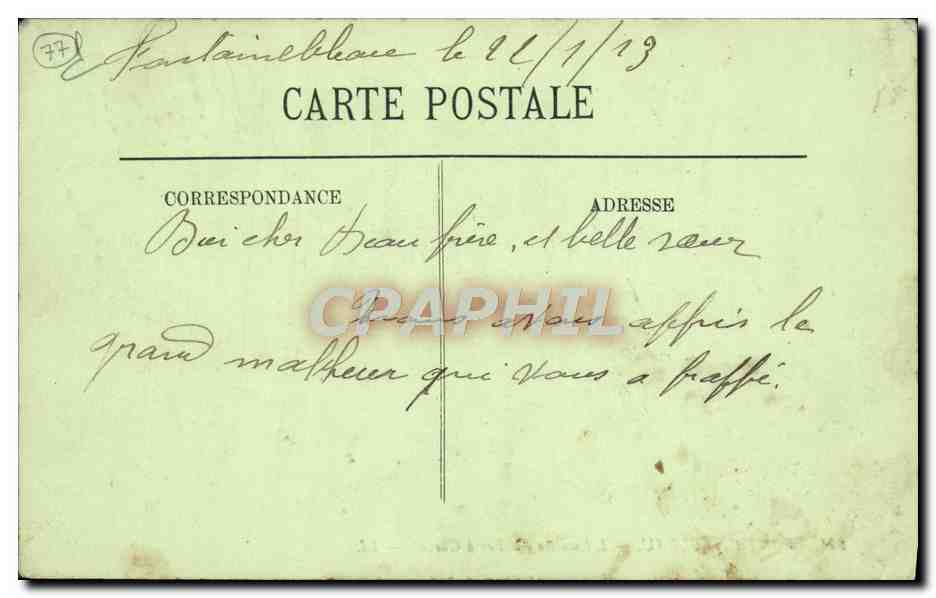 77
Fontainebleau le 22/1/13
CARTE POSTALE
CORRESPONDANCE
ADRESSE
Bien cher beau frère, et belle sœur
CPAPHIL
Nous avons appris le
grand malheur qui vous a frappé.